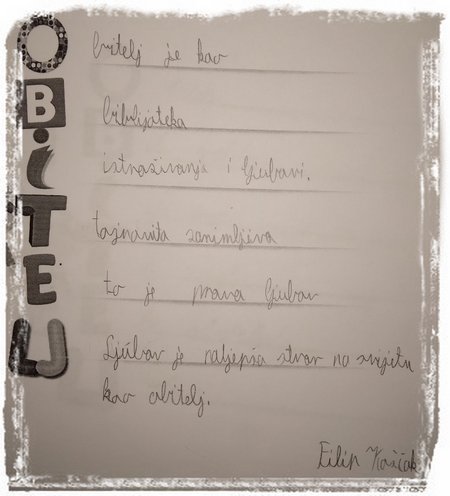 O bitelj je kao
B biblijoteka
i istraživanja i ljubavi.
T tajnovita zanimljiva
E to je prava ljubav
LJ Ljubav je naljepša stvar na svijetu
kao obitelj.
Filip